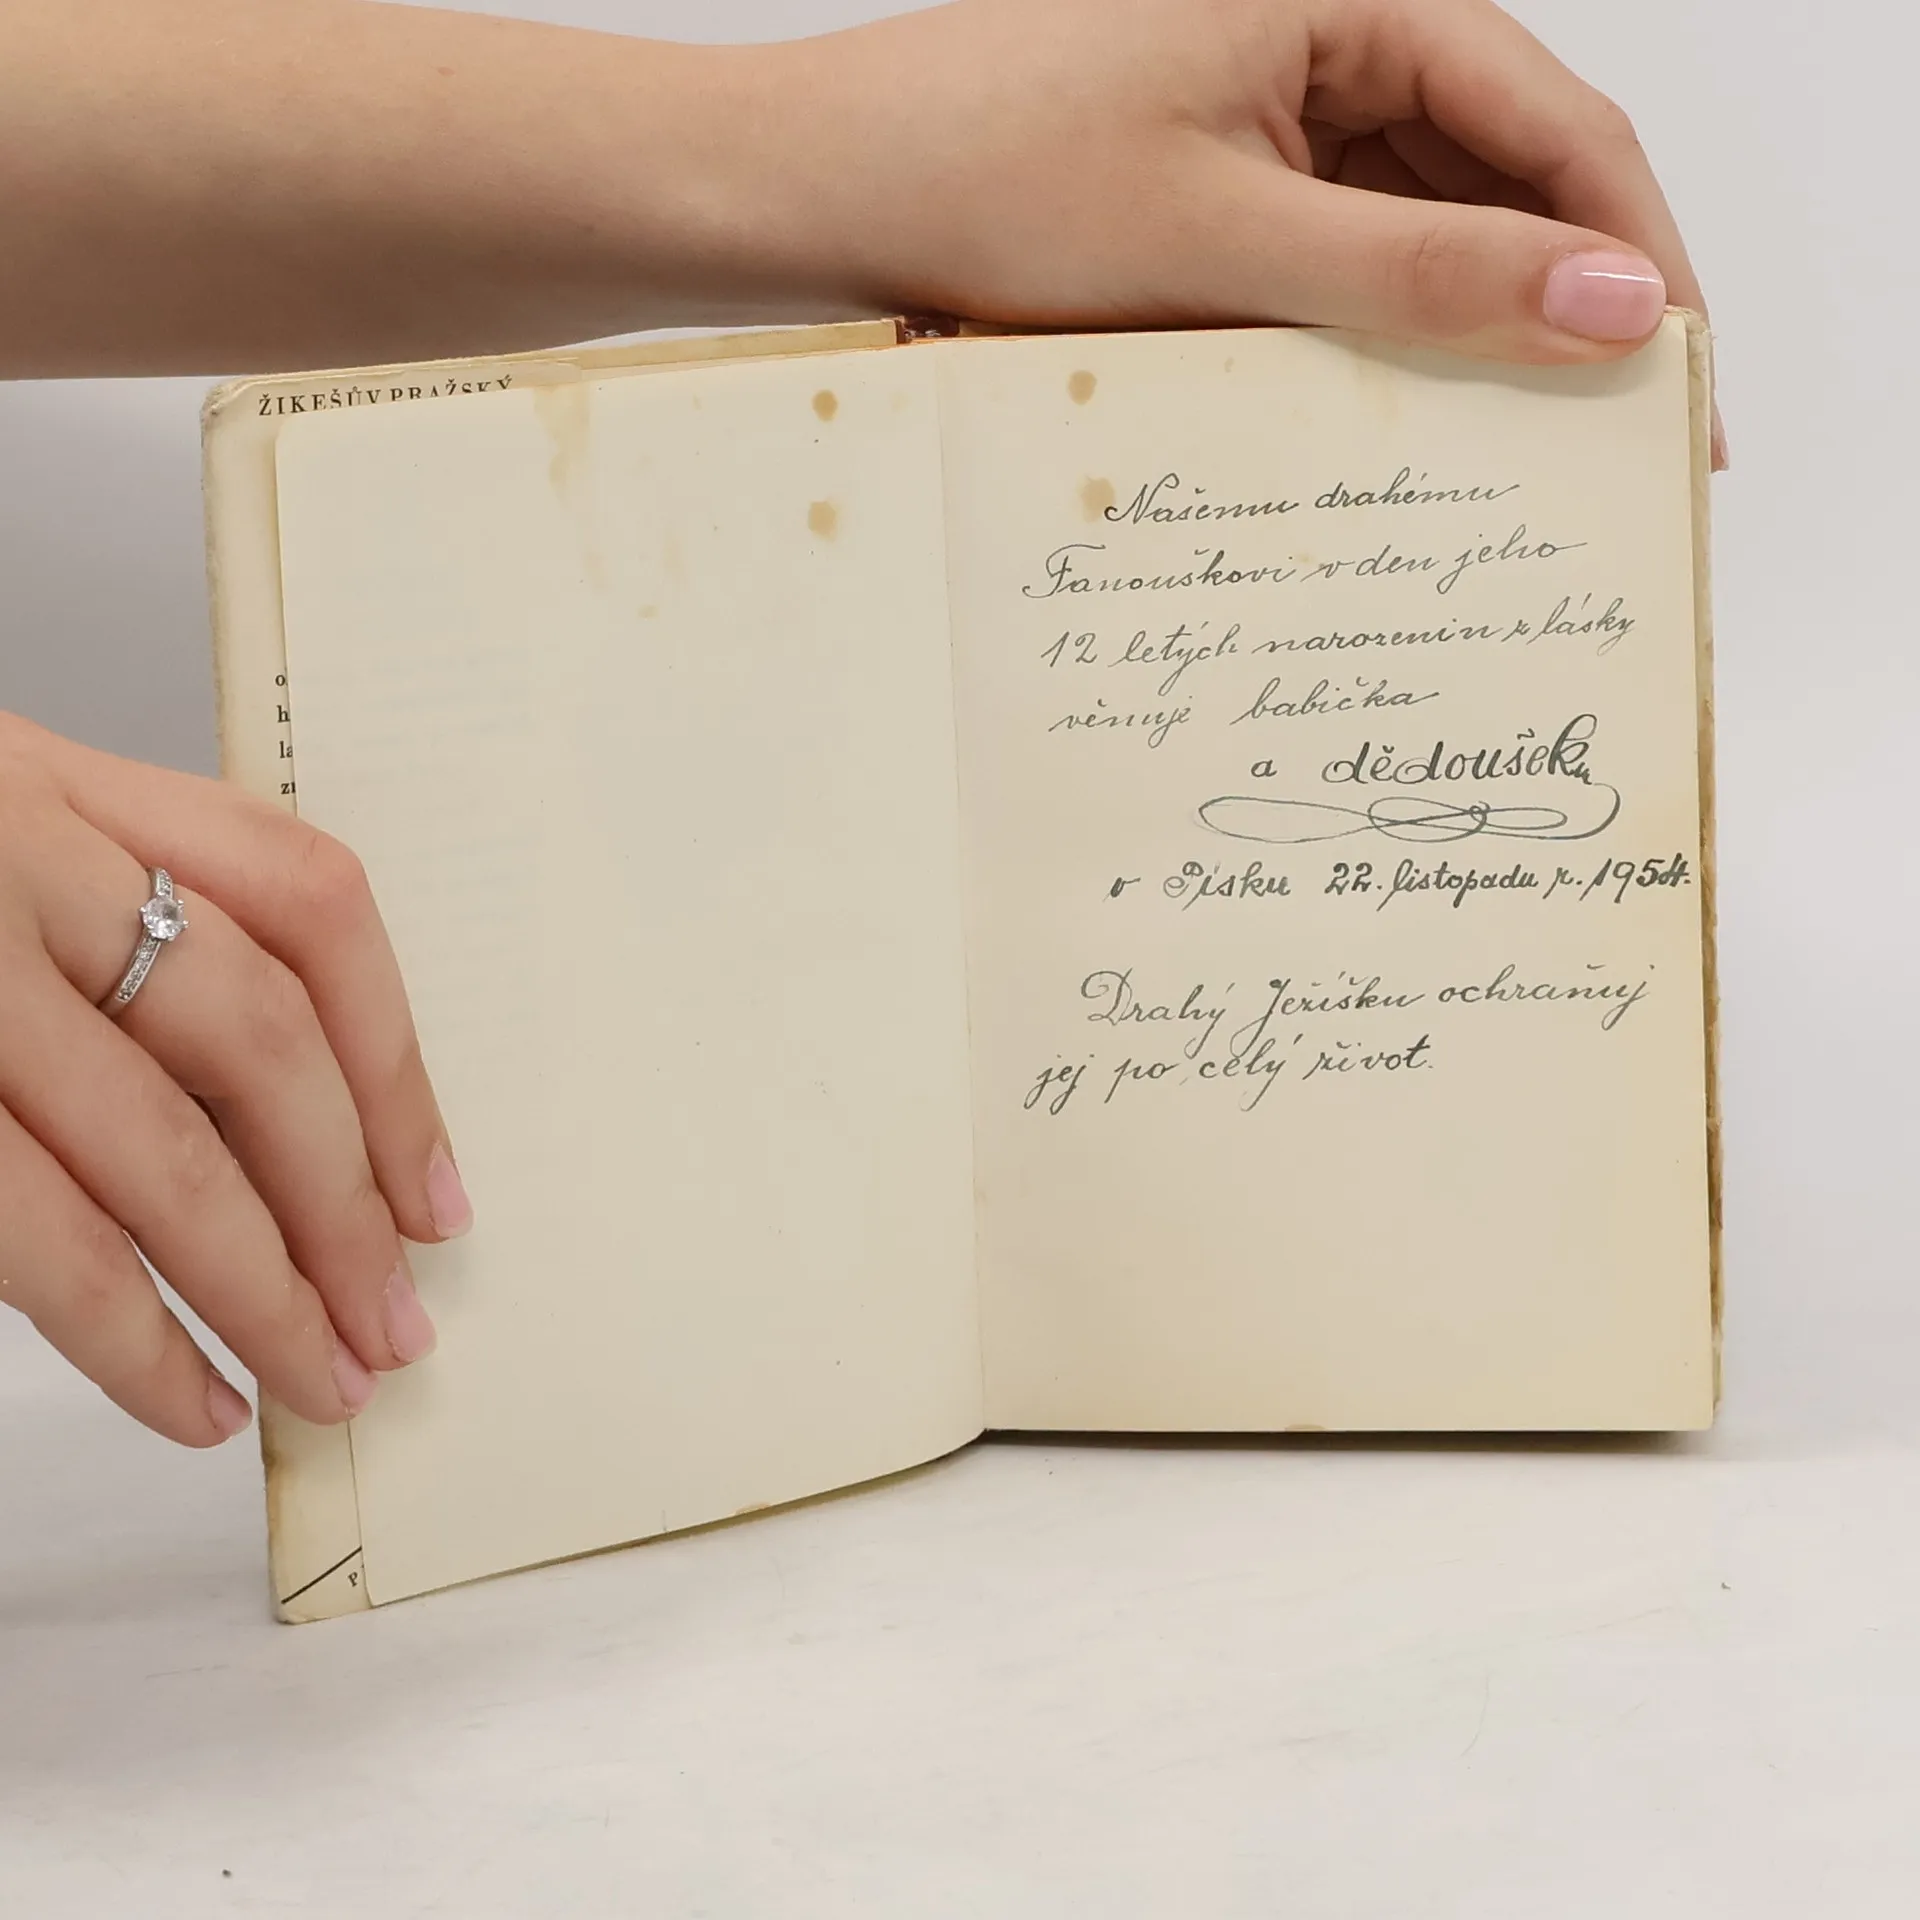 ŽIKEŠŮV PRAŽSKÝ
o
h
la
zn
P
Našemu drahému
Fanouškovi v den jeho
12 letých narozenin z lásky
věnuje babička
a dědoušek
v Písku 22. listopadu r. 1954.
Drahý Ježíšku ochraňuj
jej po celý život.